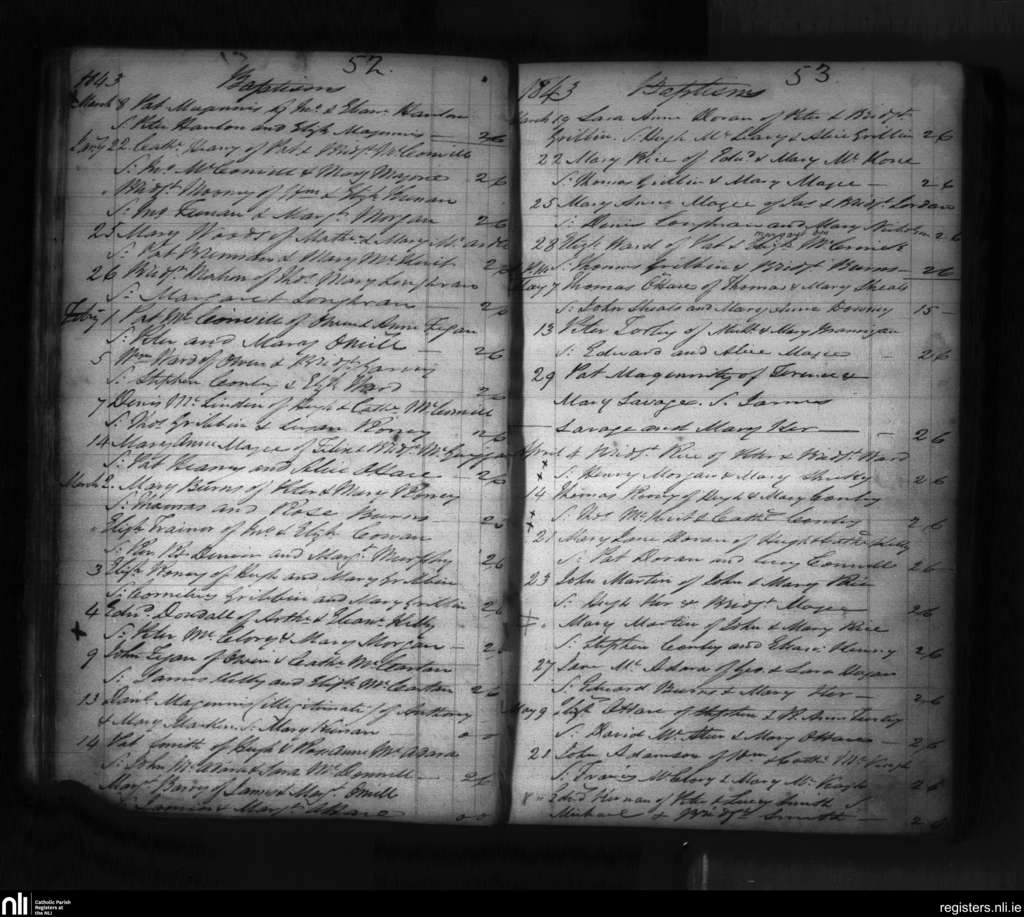 52.
1843 Baptisms
March 8 Pat Magennis of Jno. & Elean. Hanlon
S: Peter Hanlon and Elizh Magennis — 2 6
Jany 22 Cathe. Heany of Pat & Bridgt. McConvill
S: Jno. McConvill & Mary 2 6
" Bridgt. of Wm & Elizh
S: Jno & Margt. Morgan 2 6
25 Mary Ward of Mathw. & Mary McArdle
S: Pat Brennan & Mary 2 6
26 Bridgt. of Thos. Mary Loughran
S: Margaret Loughran 2 6
Feby 1 Pat McConvill of Owen & Anne Fegan
S: Peter and Mary ONeill — 2 6
5 Wm Ward of Owen & Bridgt. Garvey
S: Stephen Conley & Elizh Ward 2 6
7 Denis McLinden of Hugh & Cathe. McConvill
S: Thos Gribbin & Susan 2 6
14 Mary Anne Magee of Felix & Bridgt.
S: Pat Heaney and Alice OHare — 2 6
March 2. Mary Burns of Peter & Mary
S: Thomas and Rose Burns 2 6
" Elizh Trainor of Jno & Elizh Cowan
S: and Margt. Murphy 2 6
3 Elizh of Hugh and Mary Gribbin
S: Cornelius Gribbin and Mary Gribbin 2 6
4 Edwd. Dowdall of Arthr. & Eleanr. Kelly
x S: Peter McClory & Mary Morgan — 2 6
9 John Fegan of Owen & Cathe. McCartan
S: James Kelly and Elizh. McCartan 2 6
13 Danl Magennis (illegitimate) of Anthony
& Mary S: Mary — 0 0
14 Pat Smith of Hugh & Rose Anne McAdam
S: John McAdam & Sara McDonnell — 2 6
Margt Barry of James & Margt. ONeill
S: James & Margt. OHare 0 0
53.
1843 Baptisms
March 19 Sara Anne Doran of Peter & Bridgt.
Gribbin. S: Hugh McLeavy & Alice Gribbin 2 6
22 Mary Rice of Edwd & Mary McKone
S: Thomas Gribbin & Mary Magee — 2 6
25 Mary Anne Magee of Jas & Bridgt. Jordan
S: Denis Loughran and Mary 2 6
28 Elizh Ward of Pat & Elizh McConvill
S: Thomas Gribbin & Bridgt Burns — 2 6
May 7 Thomas OHare of Thomas & Mary Sheals
S: John Sheals and Mary Anne Downey 15 —
13 Peter of & Mary Brannigan
S: Edward and Alice Magee — 2 6
29 Pat Magennity of Terence &
Mary Savage. S: James
Savage and Mary Ker — 2 6
April 4 Bridgt. Rice of Peter & Bridgt. Ward
x S: Henry Morgan & Mary 2 6
14 Thomas of Hugh & Mary Conley
x S: Thos & Cathe. Conley 2 6
x 21 Mary Jane Doran of Hugh & Cathe. Kelly
S: Pat Doran and Lucy Connell 2 6
23 John Martin of John & Mary Rice
S: Hugh Ker & Bridgt. Magee 2 6
" Mary Martin of John & Mary Rice
S: Stephen Conley and Eleanr. 2 6
27 Jane McAdam of Jas & Sara Hagan
S: Edward Burns & Mary Ker — 2 6
May 9 Elizh OHare of Stephen & R. Anne
S: David & Mary OHare — 2 6
21 John Adamson of Wm & Cathe. McVeigh
S: Francis McClory & Mary McVeigh 2 6
8 " Edwd of Peter & Lucy Smith S:
Michael & Bridgt. Smith — 2 6
nli
Catholic Parish
Registers at
the NLI
registers.nli.ie